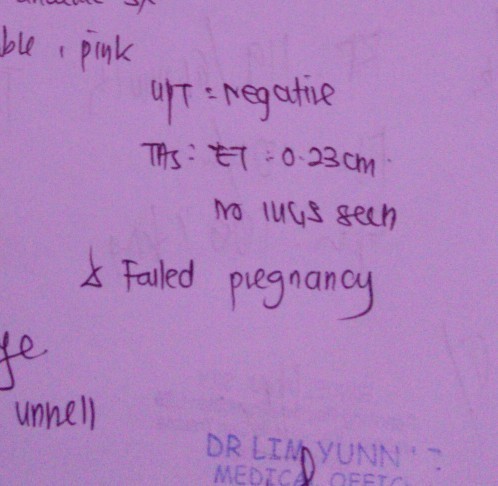 pink
UPT = negative
TAS : ET = 0.23cm.
no IUGS seen
Failed pregnancy
unnell
DR LIM YUNN
MEDICAL OFFIC